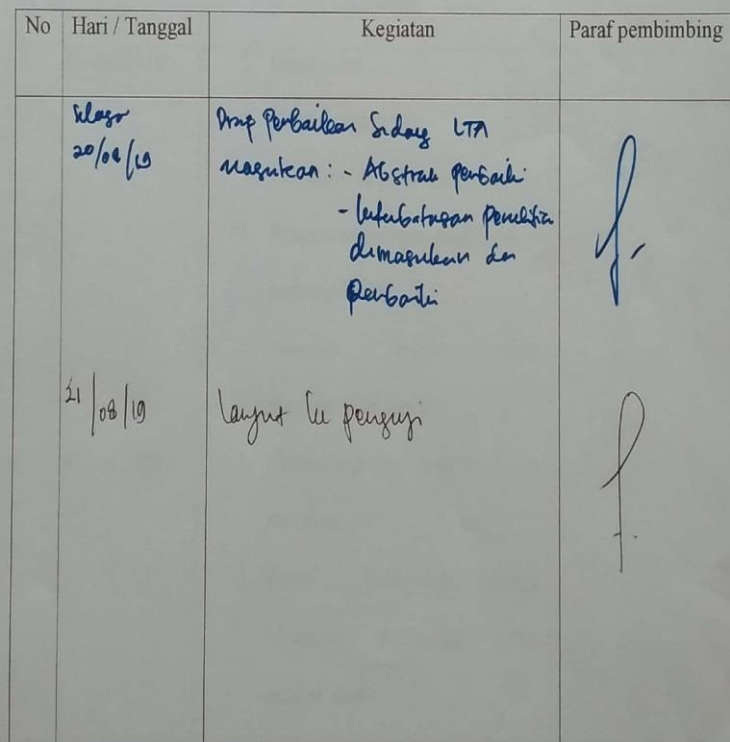 No Hari / Tanggal Kegiatan Paraf pembimbing
Selasa Drap Perbaikan Sidang LTA
20/08/19 Masukan : - Abstrak perbaiki
- keterbatasan penelitian
dimasukan dan
Perbaiki
21/08/19 Lanjut ke penguji